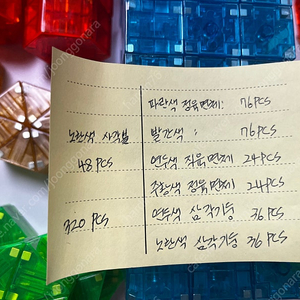 파란색 정육면체: 76PCS
노란색 사각뿔
발간색 : 76PCS
48PCS
연두색 직육면체 24PCS
주황색 정육면체 24PCS
320PCS
연두색 삼각기둥 36PCS
노란색 삼각기둥 36PCS